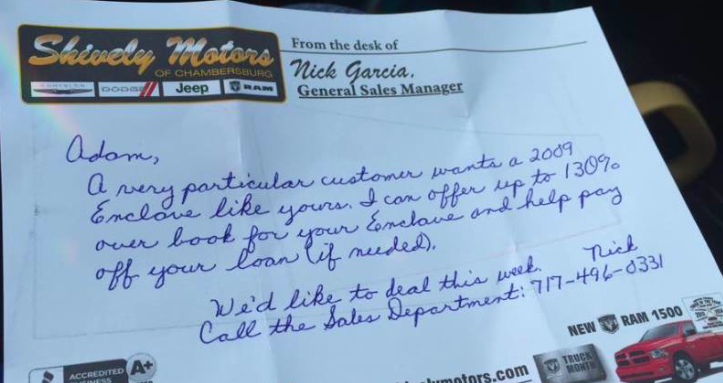 Shively Motors
OF CHAMBERSBURG
CHRYSLER DODGE Jeep RAM
From the desk of
Nick Garcia,
General Sales Manager
Adam,
A very particular customer wants a 2009
Enclave like yours. I can offer up to 130%
over book for your Enclave and help pay
off your loan (if needed).
We'd like to deal this week. Nick
Call the Sales Department: 717-496-0331
ACCREDITED
A+
velymotors.com
TRUCK
MONTH
NEW RAM 1500